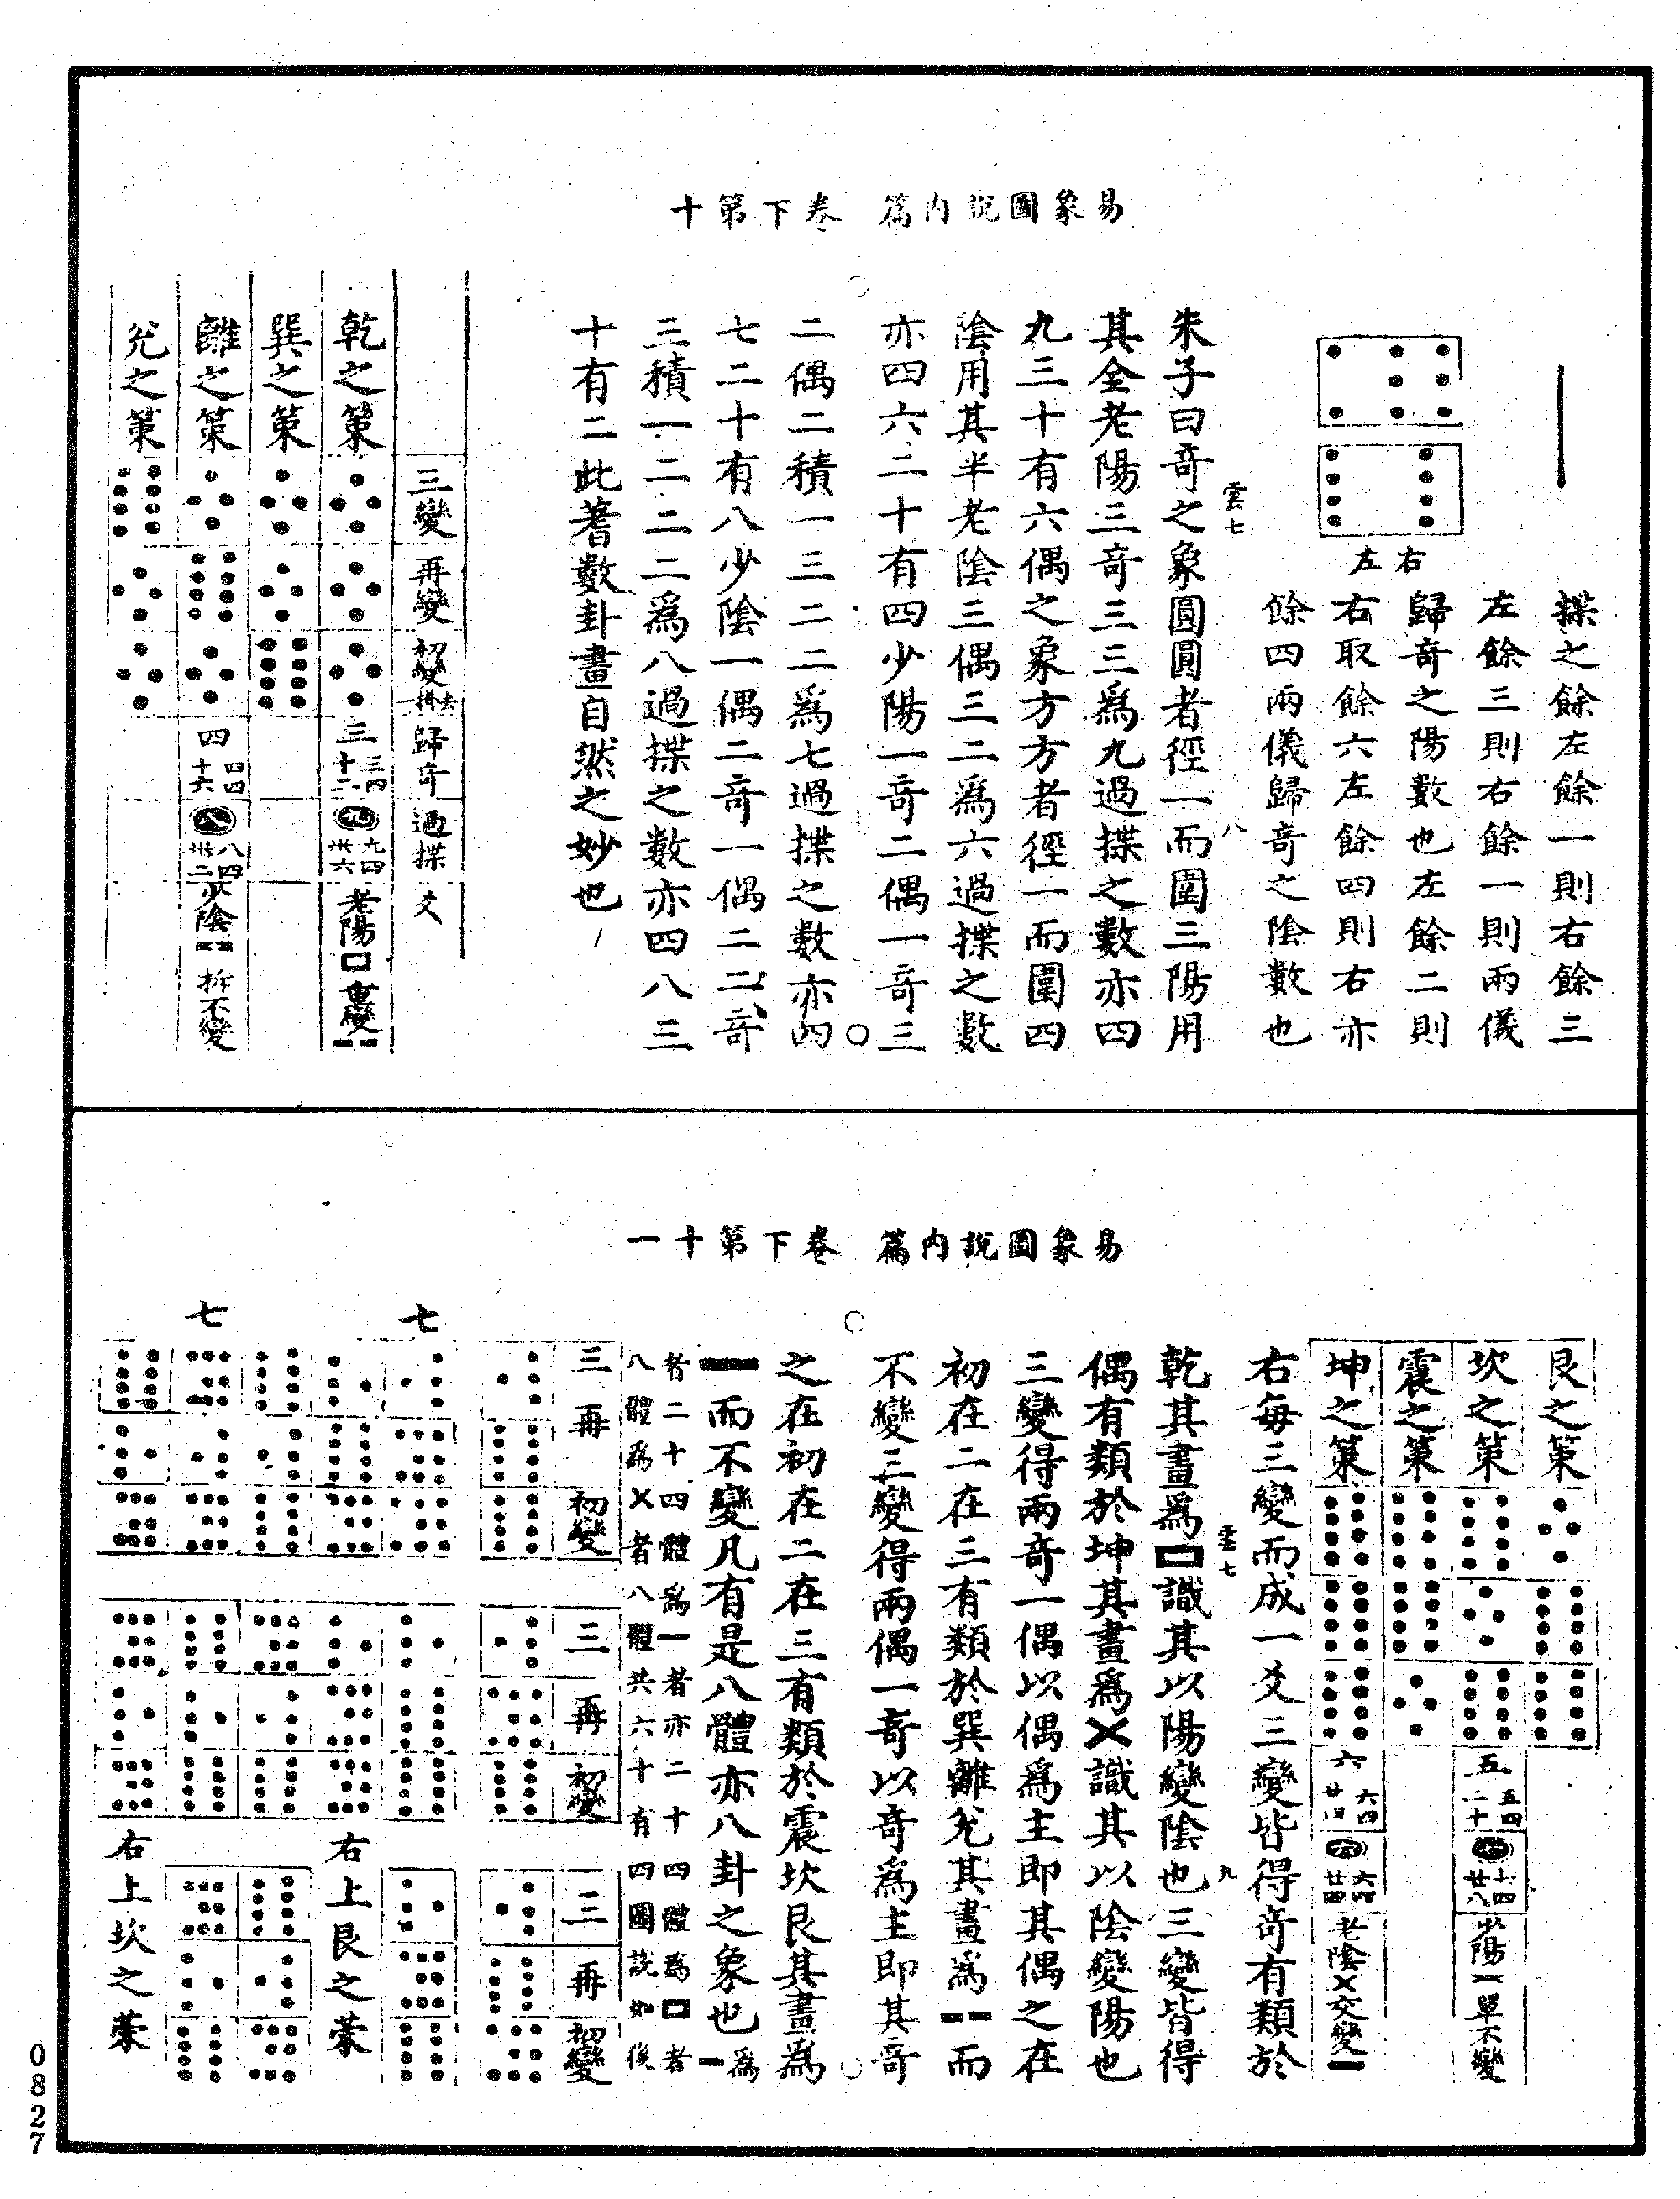 易象圖說內篇　卷下第十
揲之餘左餘一則右餘三
左餘三則右餘一則兩儀
歸奇之陽數也左餘二則
右取餘六左餘四則右亦
餘四兩儀歸奇之陰數也
右
左
雲七
八
朱子曰奇之象圓圓者徑一而圍三陽用
其全老陽三奇三三爲九過揲之數亦四
九三十有六偶之象方方者徑一而圍四
陰用其半老陰三偶三二爲六過揲之數
亦四六二十有四少陽一奇二偶一奇三
二偶二積一三二二爲七過揲之數亦四
七二十有八少陰一偶二奇一偶二二奇
三積一二二二二爲八過揲之數亦四八三
十有二此蓍數卦畫自然之妙也
三變　再變　初變一掛去　歸奇　過揲　爻
乾之策　三　三四十二　九　九四卅六　老陽　重變
巽之策
離之策　四　四四十六　八　八四卅二　少陰　拆不變
兌之策
易象圖說內篇　卷下第十一
艮之策
坎之策　五　五四二十　七　七四廿八　少陽　單不變
震之策
坤之策　六　六四廿四　六　六四廿四　老陰　交變
右每三變而成一爻三變皆得奇有類於
雲七
九
乾其畫爲囗識其以陽變陰也三變皆得
偶有類於坤其畫爲✕識其以陰變陽也
三變得兩奇一偶以偶爲主即其偶之在
初在二在三有類於巽離兌其畫爲⚋而
不變三變得兩偶一奇以奇爲主即其奇
之在初在二在三有類於震坎艮其畫爲
⚊而不變凡有是八體亦八卦之象也⚋爲
者二十四體爲⚊者亦二十四體爲囗者
八體爲✕者八體共六十有四圖說如後
三　再　初變
三　再　初變
三　再　初變
七
右上艮之蒙
七
右上坎之蒙
0827